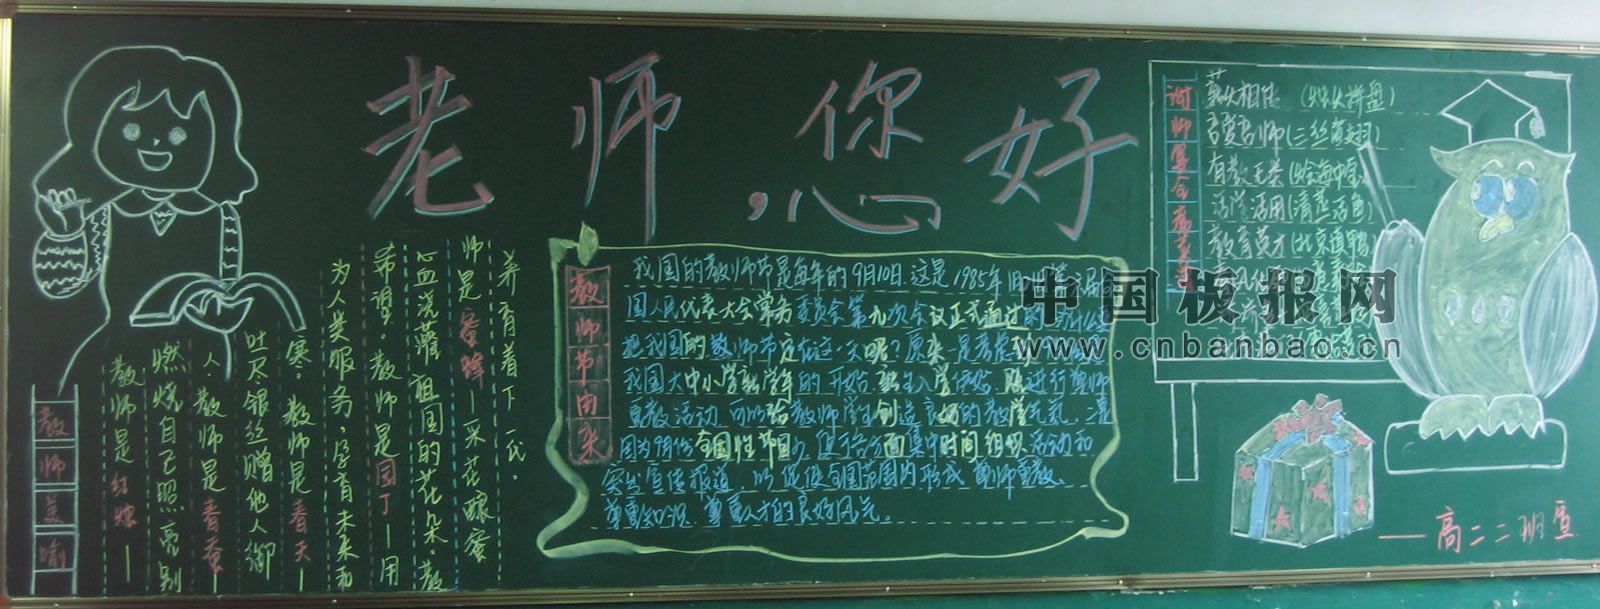 老师，您好
教师美喻
教师是红烛—
燃烧自己照亮别
人，教师是春蚕—
吐尽银丝赠他人御
寒，教师是春天—
为人类服务，孕育未来和
希望，教师是园丁—用
心血浇灌祖国的花朵，教
师是蜜蜂—采花酿蜜
养育着下一代。
教师节由来
我国的教师节是每年的9月10日.这是1985年1月
国人民代表大会常务委员会第九次会议正式通过的
把我国的教师节定在这一天呢？原来一是考虑
我国大中小学新学年的开始.新生入学伊始.即进行尊师
重教活动.可以给教师学生创造良好的教学气氛.二是
因为9月份全国性节日少.便于各方面集中时间.组织活动和
突出宣传报道.以促使全国范围内形成尊师重教
尊重知识.尊重人才的良好风气.
谢师宴
薪火相传
吾爱吾师(三丝
有教无类
活学活用(清蒸活鱼)
教育英才(北京填鸭)
中国板报网
www.cnbanbao.cn
——高二二班宣